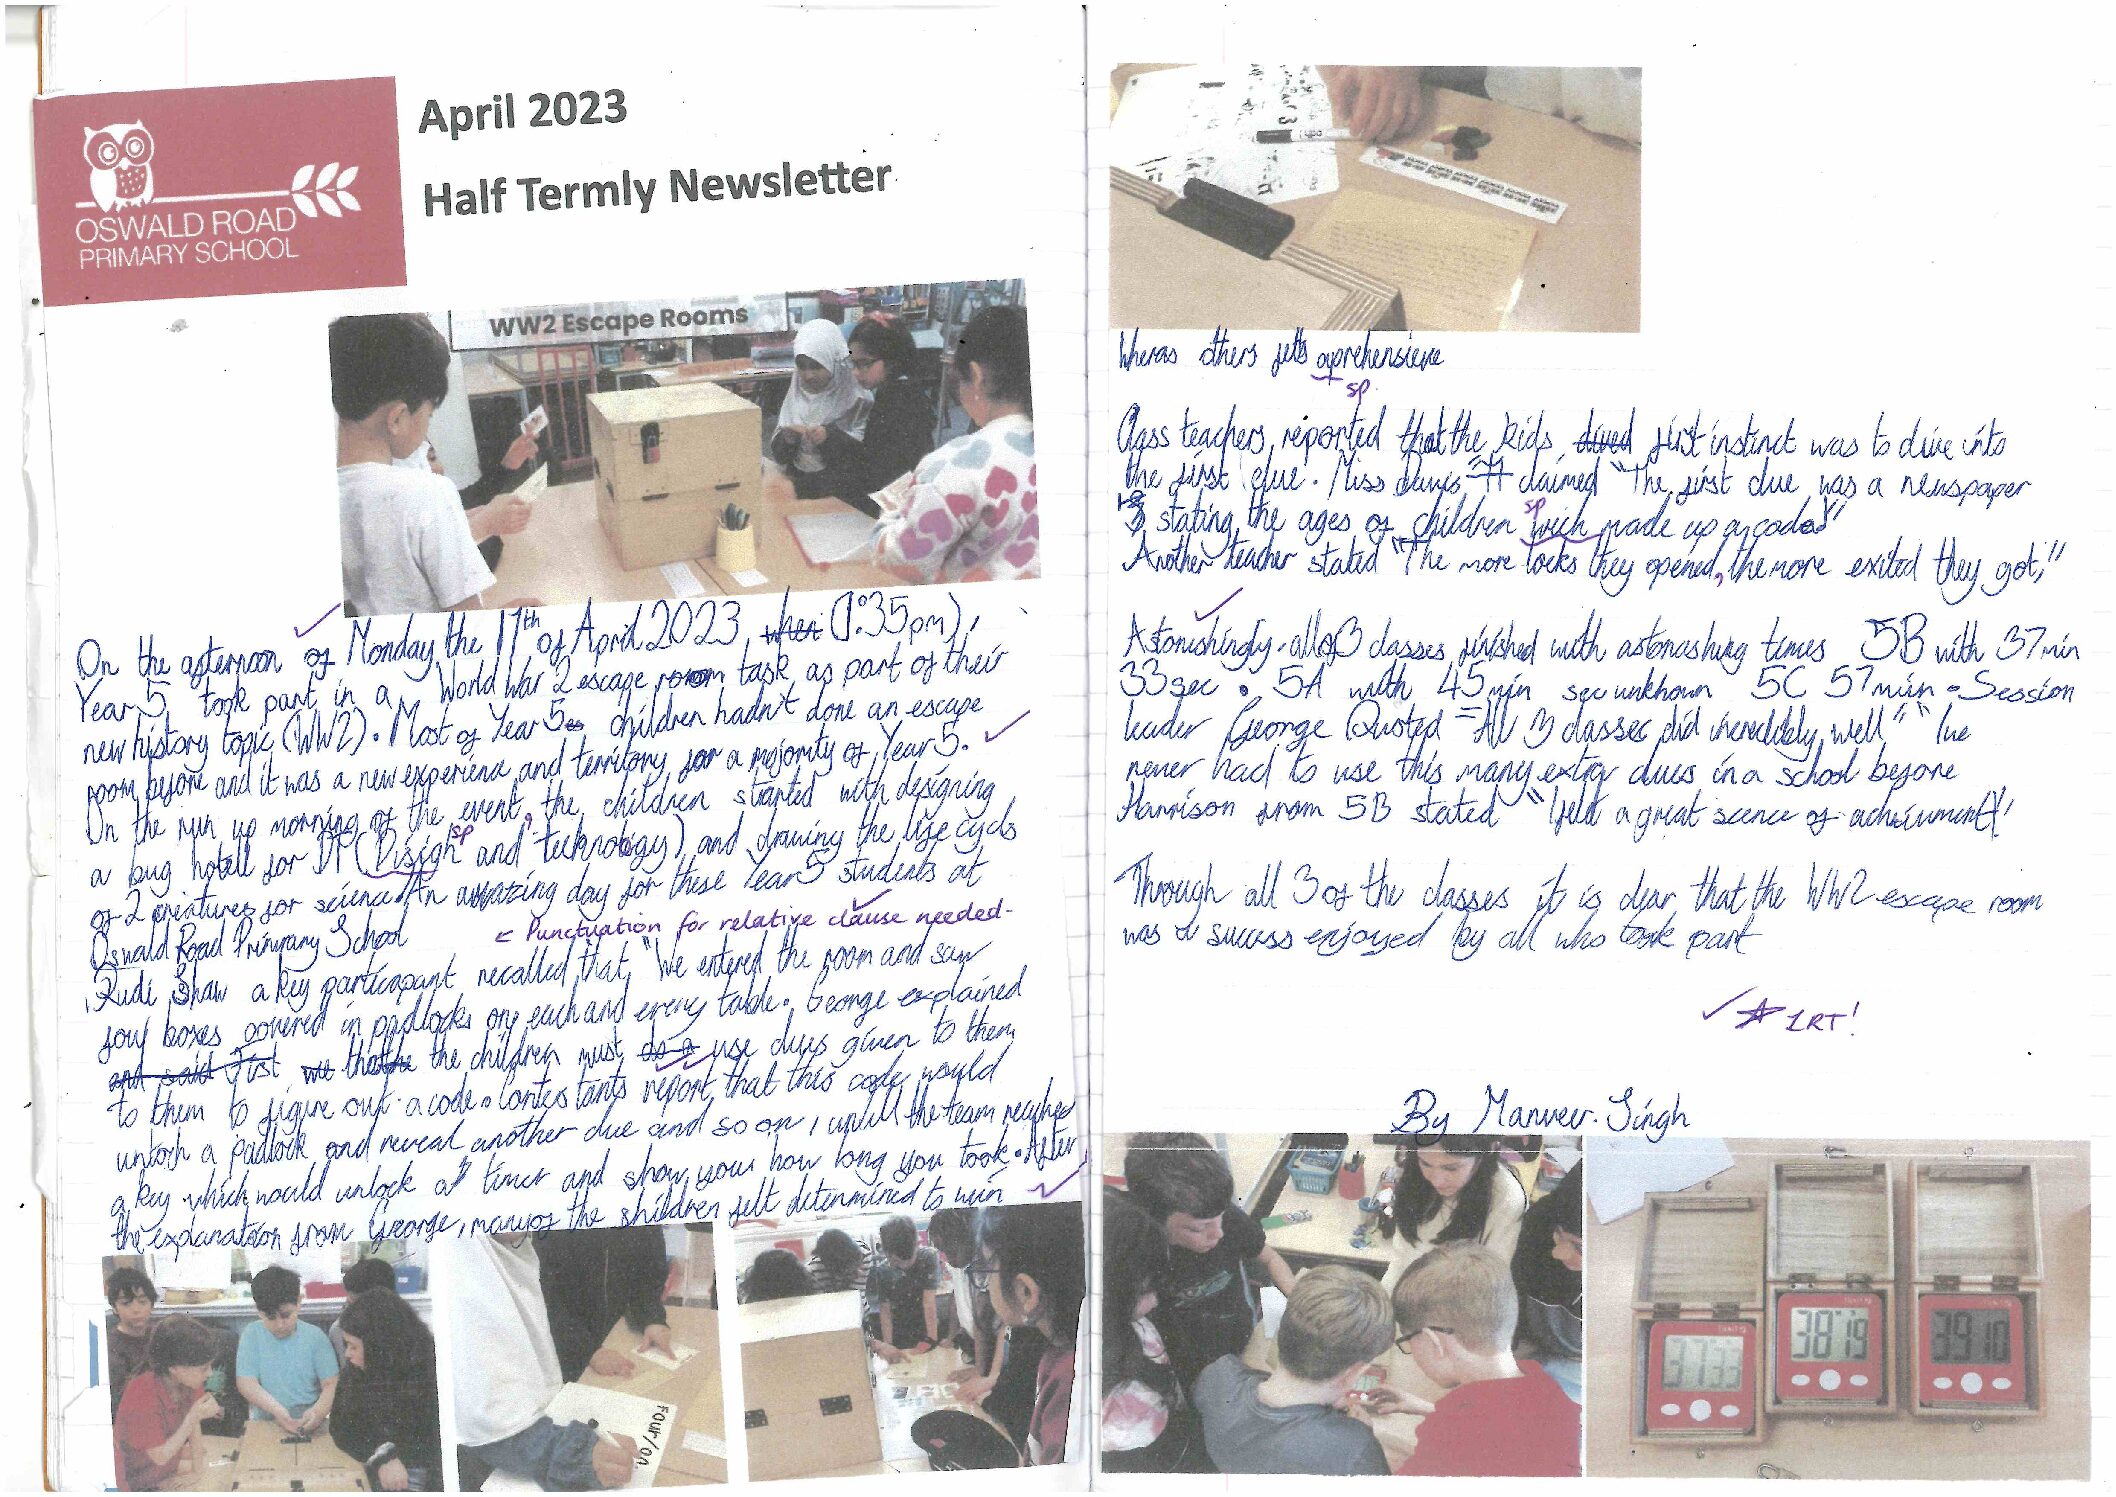 OSWALD ROAD
PRIMARY SCHOOL
April 2023
Half Termly Newsletter
WW2 Escape Rooms
On the afternoon of Monday the 17th of April 2023 when (1:35pm),
Year 5 took part in a World War 2 escape room task as part of their
new history topic (WW2). Most of Year 5 children hadn't done an escape
room before and it was a new experience and territory for a majority of Year 5.
On the run up morning of the event, the children started with designing
a bug hotell for DT (Disigh and technology) and drawing the life cycls
sp
of 2 creatures for science. An amazing day for these Year 5 students at
Oswald Road Primary School
← Punctuation for relative clause needed-
Rudi Shaw a key participant recalled that, "We entered the room and saw
four boxes covered in padlocks on each and every table. George explained
and said Just we the the children must do a use clues given to them
to them to figure out a code. Contestants report that this code would
untoch a padlock and reveal another clue and so on, untill the team reached
a key which would unlock a timer and show your how long you took. After
the explanation from George, many of the shildren felt determined to win
FOUR/
Wheras others felt aprehensieve
sp
Class teachers, reported that the kids, dived first instinct was to dive into
the first clue. Miss claimed "The first clue was a newspaper
stating the ages of children wich made up a code"
sp
Another teacher stated "The more locks they opened, the more exited they got,"
Astonishingly all of 3 classes finished with astonashing times 5B with 37min
33sec. 5A with 45min sec unkhown 5C 57min. Session
leader George Quoted "All 3 classes did incredibly well" "Ive
never had to use this many extra clues in a school before
Harrison from 5B stated "I felt a great scence of acheivment"
Through all 3 of the classes it is clear that the WW2 escape room
was a success enjoyed by all who took part
1RT!
By Manveer Singh
37 33
38 19
39 10